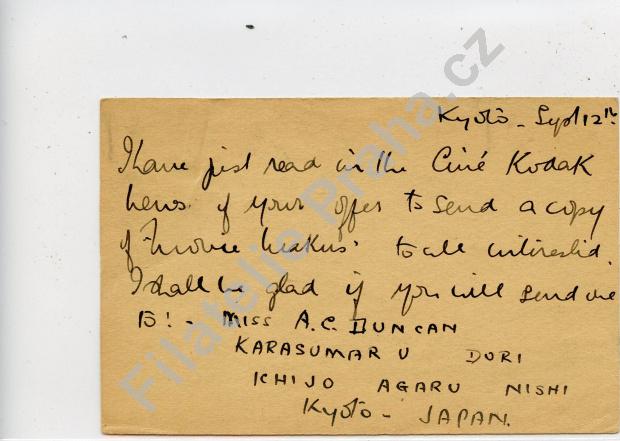 Kyoto - Sept 12th.
I have just read in the Ciné Kodak
News of your offer to send a copy
of "Movie Makers" to all interested.
I shall be glad if you will send me
to! - MISS A.C. DUNCAN
KARASUMARU DORI
ICHIJO AGARU NISHI
Kyoto - JAPAN.
Filatelie Praha.cz